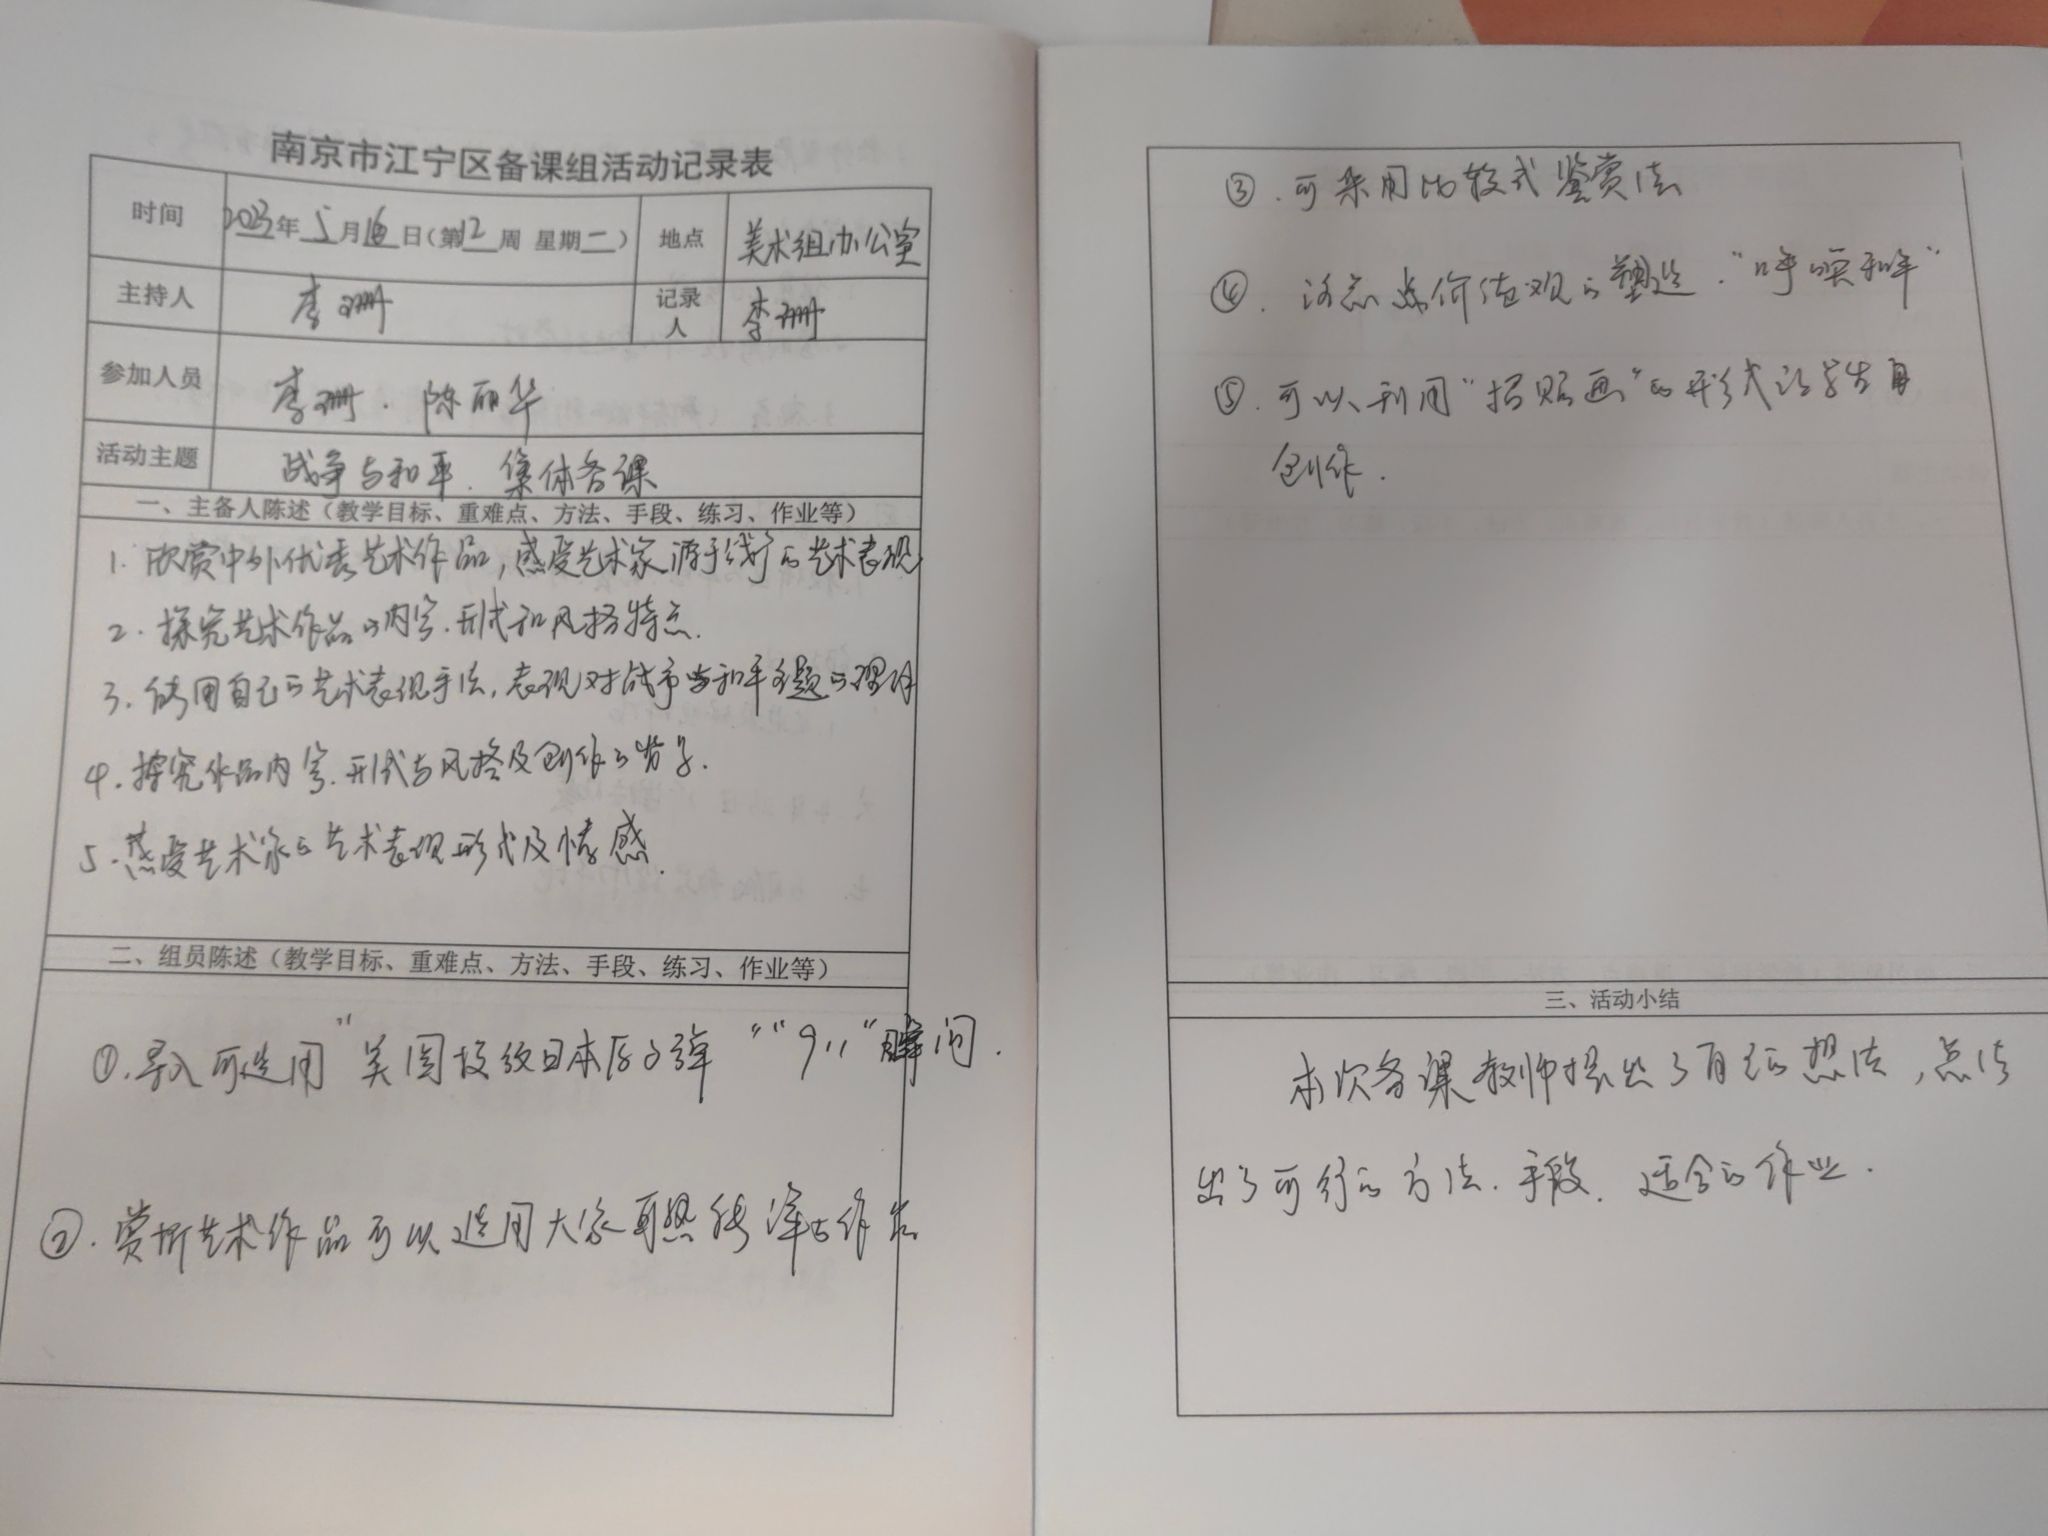 南京市江宁区备课组活动记录表
时间 2023年5月16日(第12周 星期二) 地点 美术组办公室
主持人 李珊 记录人 李珊
参加人员 李珊.陈丽华
活动主题 战争与和平.集体备课
一、主备人陈述(教学目标、重难点、方法、手段、练习、作业等)
1.欣赏中外优秀艺术作品,感受艺术家源于的艺术表现
2.探究艺术作品的内容.形式和风格特点.
3.使用自己的艺术表现手法,表现对战争与和平主题的理解
4.探究作品内容.形式与风格及创作的背景.
5.感受艺术家的艺术表现形式及情感.
二、组员陈述(教学目标、重难点、方法、手段、练习、作业等)
①.导入可选用"美国投放日本原子弹""911"瞬间.
②.赏析艺术作品可以选用大家耳熟能详的作品
③.可采用比较式鉴赏法
④.注意点价值观的塑造."呼唤和平"
⑤.可以利用"招贴画"的形式让学生自
创作.
三、活动小结
本次备课教师提出了自己的想法,总结
出了可行的方法.手段.适合的作业.